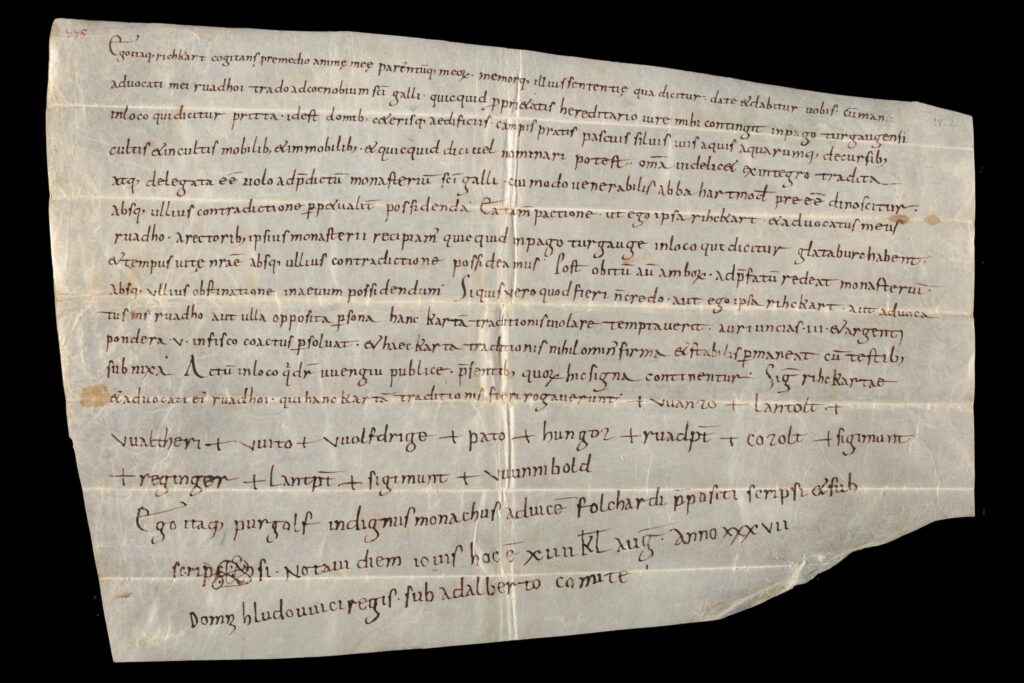 Ego itaq; richkart cogitans p remedio animę meę parentūq; meoꝝ. memorq; illius sententię qua dicitur. date & dabitur vobis. cū man
advocati mei ruadhoi trado ad coenobium sc̄i galli. quicquid p̱prietatis hereditario iure mihi contingit in pago turgaugensi
in loco qui dicitur pritta. id est domib; cęterisq; aedificiis campis pratis pascuis silvis viis aquis aquarumq; decursib;
cultis & incultis mobilib; & inmobilib; & quicquid dici vel nominari potest. om̄a videlicet ex integro tradita
atq; delegata eē volo ad p̄dictū monasteriū sc̄i galli. cui modo venerabilis abba hartmōt pre eē dinoscitur.
absq; ullius contradictione p̱p&ualit̄ possidenda. Ea tam̄ pactione. ut ego ipsa rihckart. & advocatus meus
ruadho. a rectorib; ipsius monasterii recipiam̄ quicquid in pago turgauge in loco qui dicitur glataburc habent.
& tempus vitę nr̄ae absq; ullius contradictione possideamus. Post obitū aū amboꝝ. ad p̄fatū redeat monasteriū.
absq; ullius obstinatione in aevum possidendum. Siquis vero quod fieri n̄ credo. aut ego ipsa rihckart. aut advoca
tus m̄s ruadho. aut ulla opposita p̱sona hanc kartā traditionis violare temptaverit. auri uncias .iii. & argenti
pondera .v. in fisco coactus p̱soluat. & haec karta traditionis nihilomin; firma & stabilis p̱maneat cū testib;
subnixa. Actū in loco q̄ dr̄ vvengiu publice. p̄sentib; quoꝝ hic signa continentur. Sig̅ rihckartae
& advocati ei; ruadhoi. qui hanc kartā traditionis fieri rogaverunt. + vvanzo + lantolt +
vvaltheri + vvito + vvolfdrige + pato + hungoz + ruadp̄t + cozolt + sigimunt
+ reginger + lantp̄t + sigimunt + vvinibold
Ego itaq; purgolf indignus monachus ad vicē folchardi p̄positi scripsi & sub
scripsi. Notavi diem iovis hoc ē xiiii kl̄ aug̅. Anno xxxvii
Domn̄ hludovvici regis. sub adalberto comite